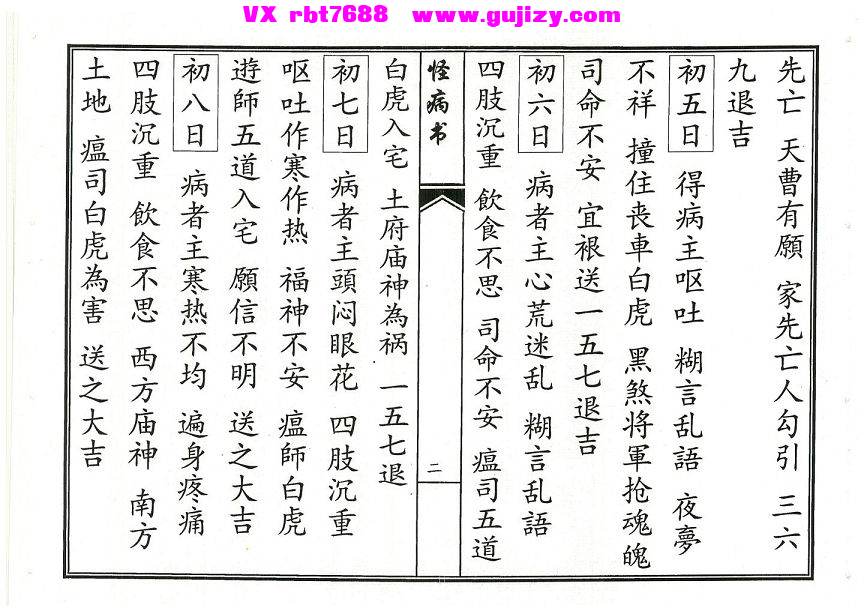 VX rbt7688 www.gujizy.com
先亡 天曹有願 家先亡人勾引 三六
九退吉
初五日 得病主呕吐 糊言乱語 夜夢
不祥 撞住丧車白虎 黑煞将軍抢魂魄
司命不安 宜裉送一五七退吉
初六日 病者主心荒迷乱 糊言乱語
四肢沉重 飲食不思 司命不安 瘟司五道
怪病书
二
白虎入宅 土府庙神為祸 一五七退
初七日 病者主頭闷眼花 四肢沉重
呕吐作寒作热 福神不安 瘟師白虎
遊師五道入宅 願信不明 送之大吉
初八日 病者主寒热不均 遍身疼痛
四肢沉重 飲食不思 西方庙神 南方
土地 瘟司白虎為害 送之大吉